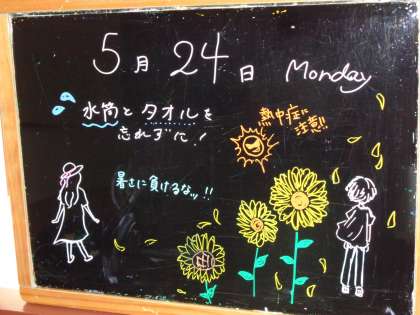 5月24日 Monday
水筒とタオルを
忘れずに!
熱中症に
注意!!
暑さに負けるなッ!!